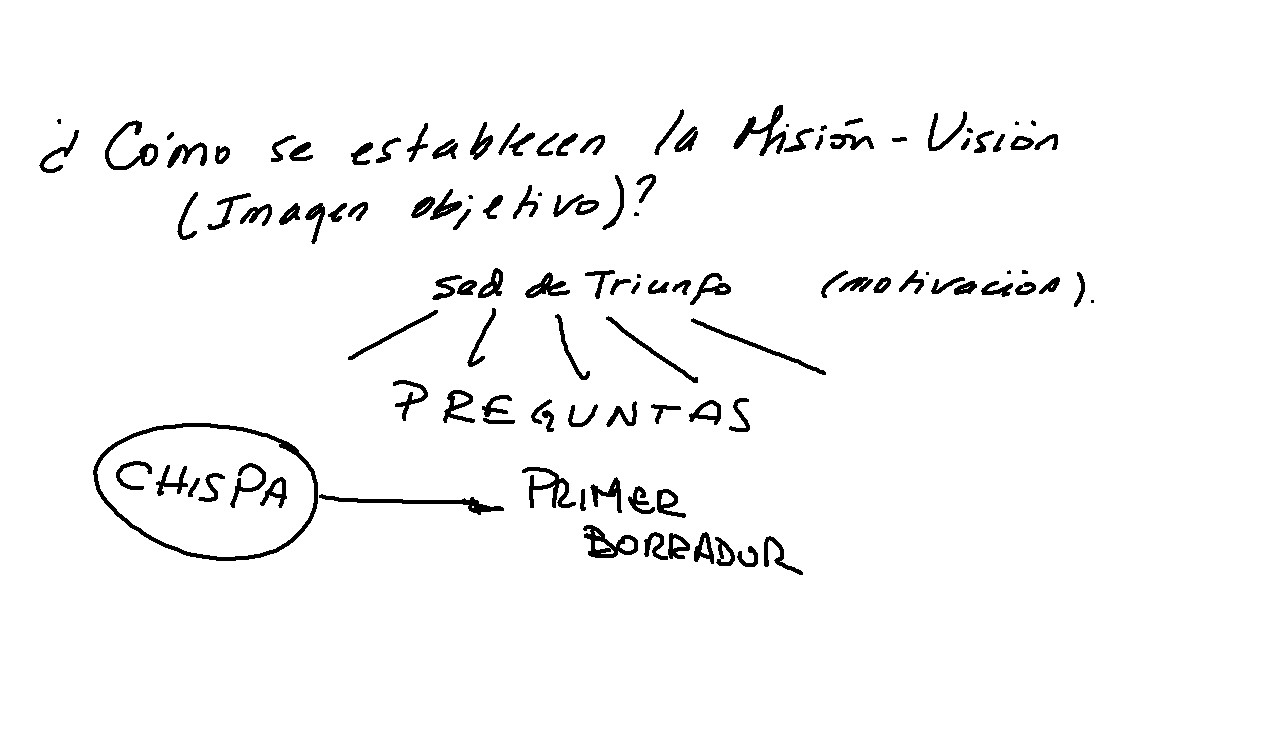 ¿Cómo se establecen la Misión-Visión
(Imagen objetivo)?
sed de Triunfo (motivación).
PREGUNTAS
CHISPA
PRIMER
BORRADOR